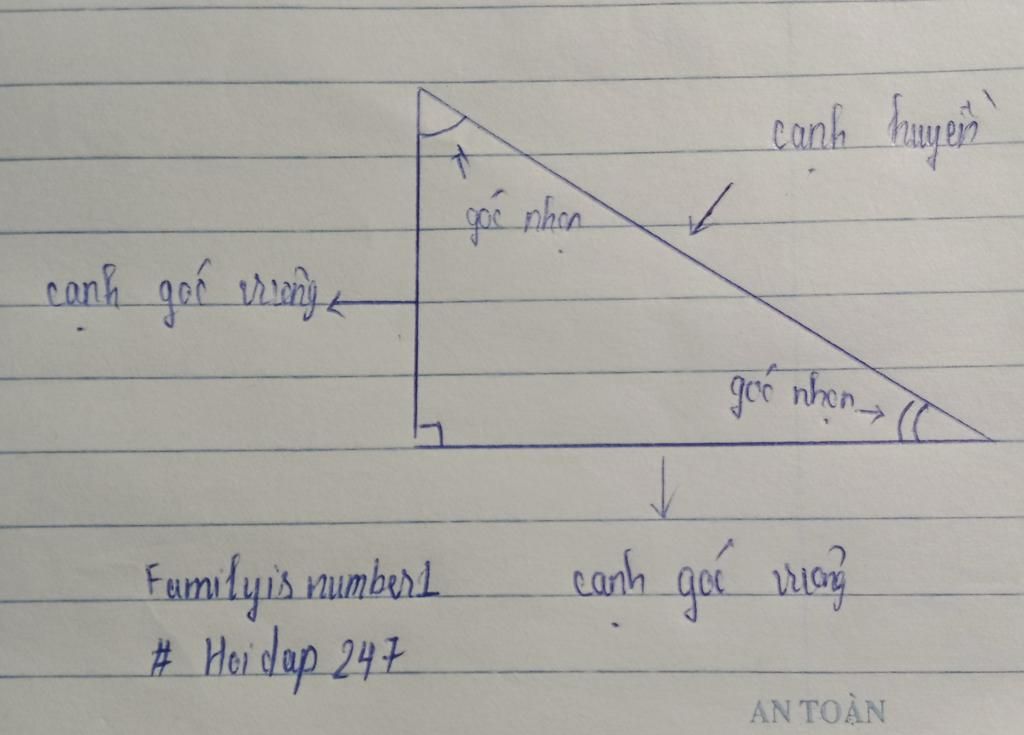 cạnh huyền
góc nhọn
cạnh góc vuông
góc nhọn
cạnh góc vuông
Familyis number1
# Hoidap 247
AN TOÀN